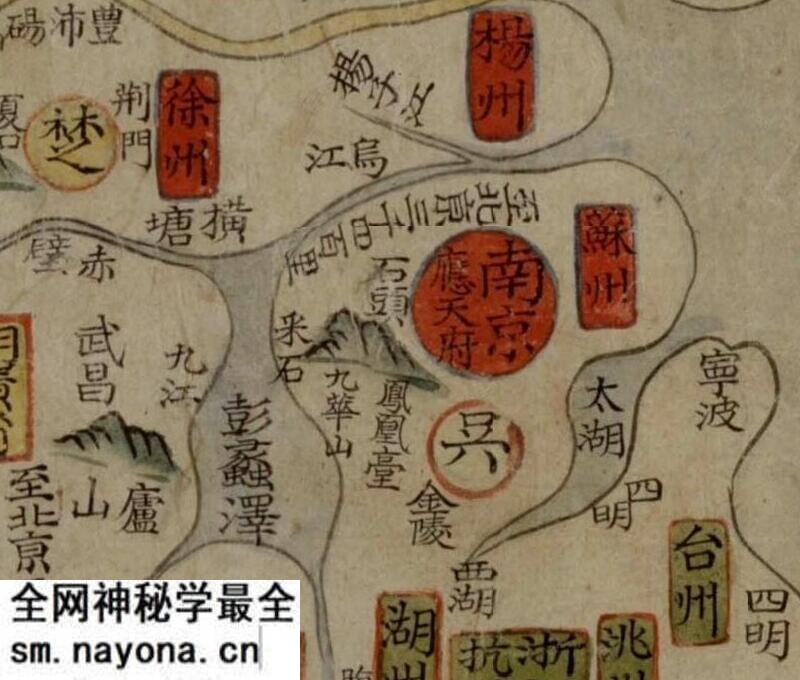 豐沛碭
楊州
楊子江
荆門
徐州
楚
烏江
至北京三千四百里
橫塘
蘇州
赤壁
石頭
南京
應天府
武昌
九江
采石
九華山
鳳凰臺
太湖
寧波
彭蠡澤
吳
金陵
四明
廬山
至北京
西湖
台州
四明
湖州
浙
抗
洮
全网神秘学最全
sm.nayona.cn